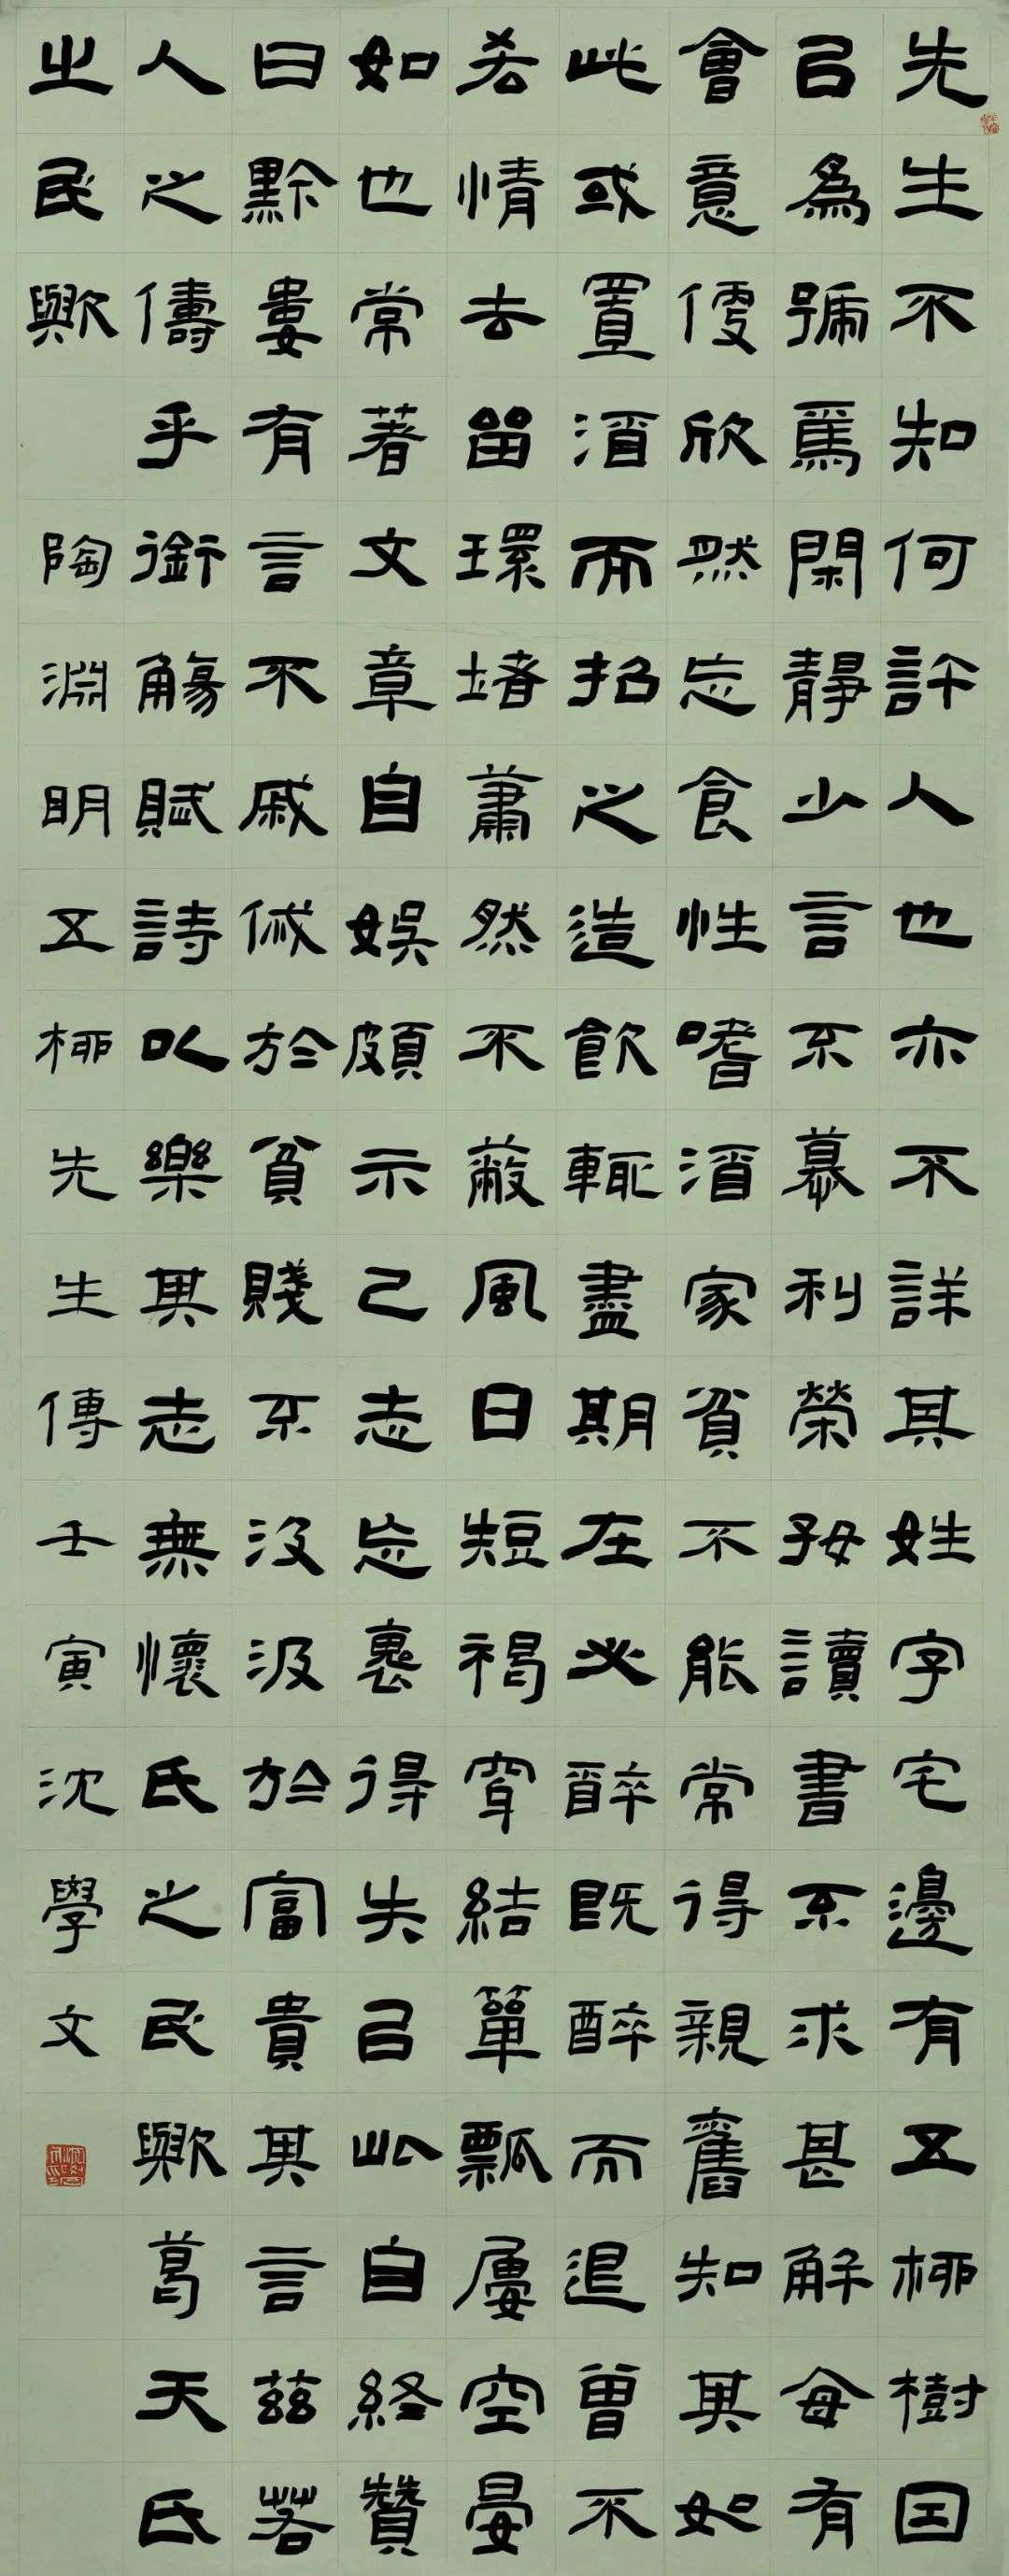 先生不知何許人也亦不詳其姓字宅邊有五柳樹因
以為號焉閑靜少言不慕利榮好讀書不求甚解每有
會意便欣然忘食性嗜酒家貧不能常得親舊知其如
此或置酒而招之造飲輒盡期在必醉既醉而退曾不
吝情去留環堵蕭然不蔽風日短褐穿結簞瓢屢空晏
如也常著文章自娛頗示己志忘懷得失以此自終贊
曰黔婁有言不戚戚於貧賤不汲汲於富貴其言茲若
人之儔乎銜觴賦詩以樂其志無懷氏之民歟葛天氏
之民歟 陶淵明五柳先生傳壬寅沈學文